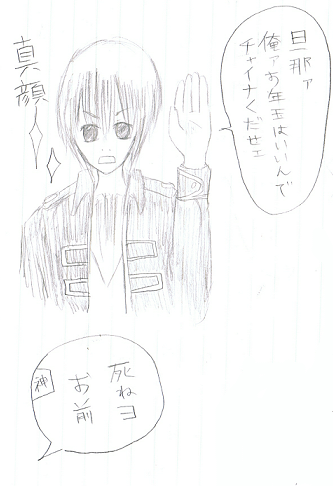 旦那ァ
俺ァお年玉はいいんで
チャイナくだせェ
真顔
死ねヨ
お前
神